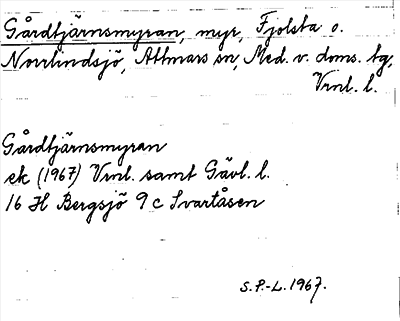 Gårdtjärnsmyran, myr, Fjolsta o.
Norrlindsjö, Attmars sn, Med. v. doms. tg,
Vrnl. l.
Gårdtjärnsmyran
ek (1967) Vrnl. samt Gävl. l.
16 H Bergsjö 9 c Svartåsen
S.P.-L. 1967.